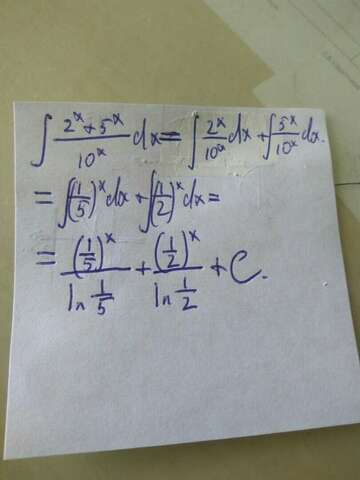 ∫ (2^x + 5^x)/10^x dx = ∫ 2^x/10^x dx + ∫ 5^x/10^x dx.
= ∫(1/5)^x dx + ∫(1/2)^x dx =
= (1/5)^x / ln 1/5 + (1/2)^x / ln 1/2 + C.